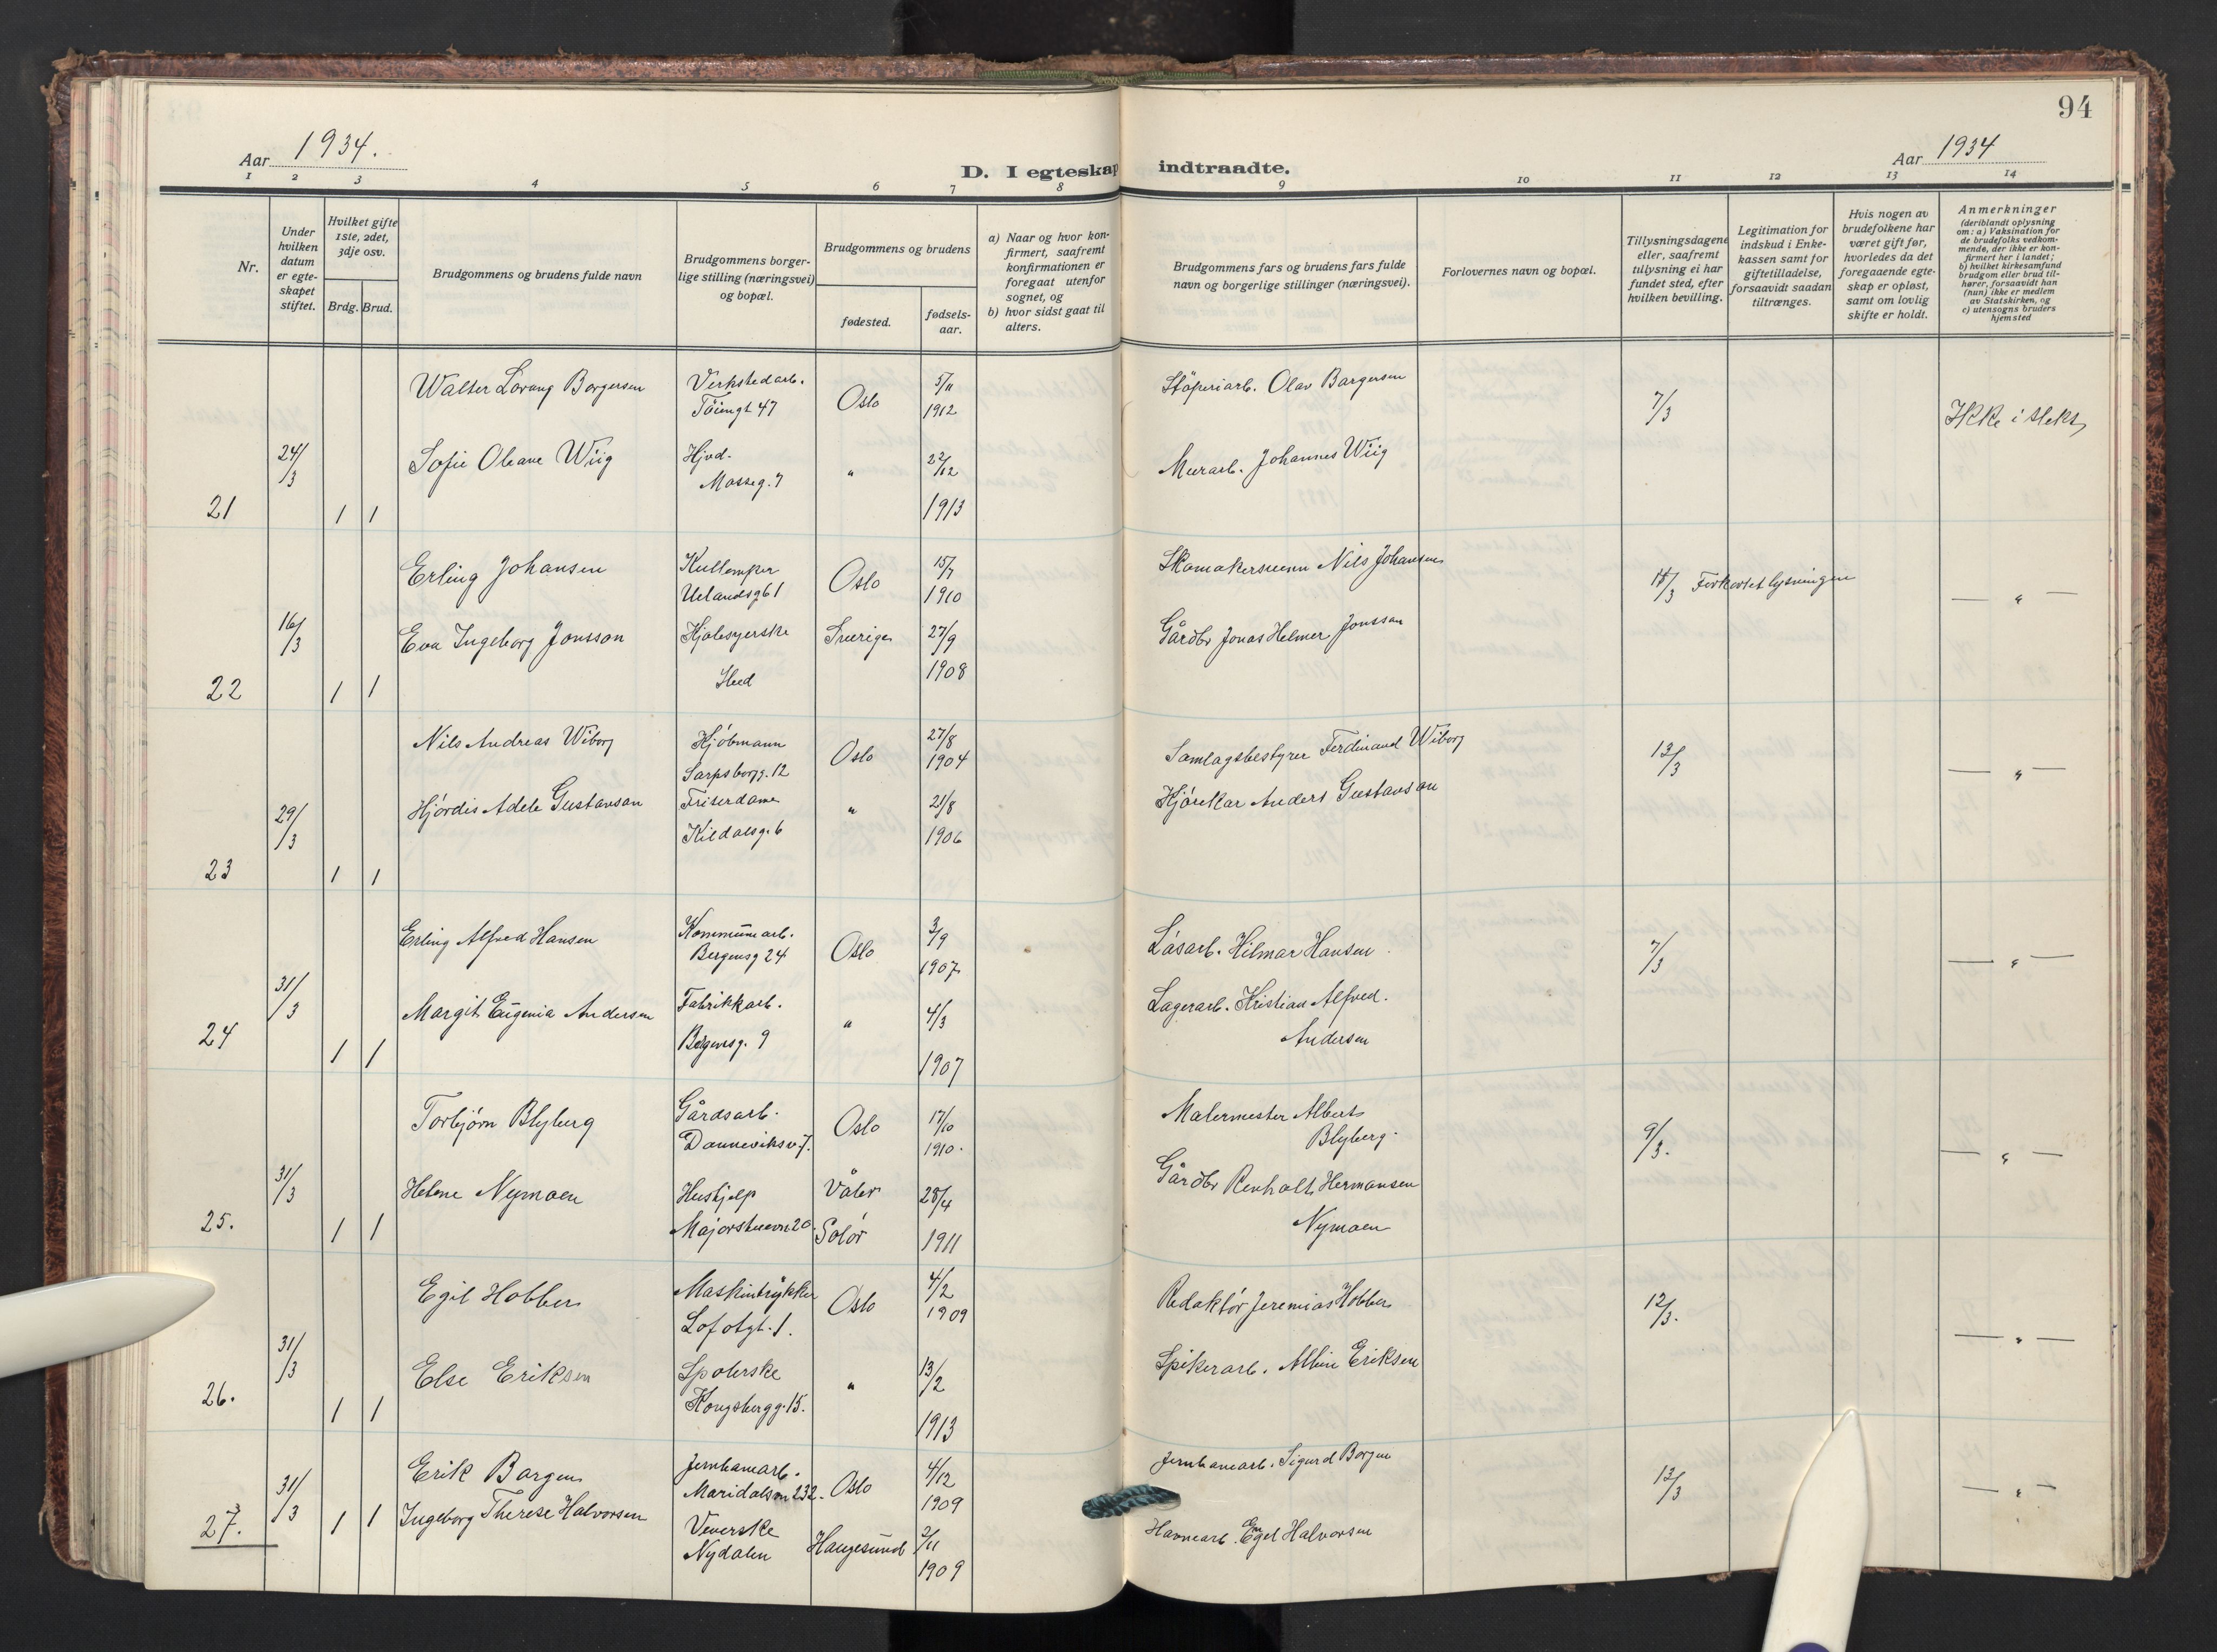 94
Aar 1934.
Aar 1934
D. I egteskap indtraadte.
1 2 3 4 5 6 7 8 9 10 11 12 13 14
Nr.
Under hvilken datum er egteskapet stiftet.
Hvilket gifte 1ste, 2det, 3dje osv.
Brdg. Brud.
Brudgommens og brudens fulde navn
Brudgommens borgerlige stilling (næringsvei) og bopæl.
Brudgommens og brudens
fødested.
fødselsaar.
a) Naar og hvor konfirmert, saafremt konfirmationen er foregaat utenfor sognet, og
b) hvor sidst gaat til alters.
Brudgommens fars og brudens fars fulde navn og borgerlige stillinger (næringsvei).
Forlovernes navn og bopæl.
Tillysningsdagene eller, saafremt tillysning ei har fundet sted, efter hvilken bevilling.
Legitimation for indskud i Enkekassen samt for giftetilladelse, forsaavidt saadan tiltrænges.
Hvis nogen av brudefolkene har været gift før, hvorledes da det foregaaende egteskap er opløst, samt om lovlig skifte er holdt.
Anmerkninger
(deriblandt oplysning om: a) Vaksination for de brudefolks vedkommende, der ikke er konfirmert her i landet; b) hvilket kirkesamfund brudgom eller brud tilhører, forsaavidt han (hun) ikke er medlem av Statskirken, og c) utensogns bruders hjemsted
Walter Lorang Borgersen Verkstedarb. Oslo 5/11 Støperiarb. Olav Borgersen 7/3 Ikke i slekt
Töiengt 47 1912
24/3 Sofie Oleane Wiig Hjvd. " 22/12 Murarb. Johannes Wiig
Mosseg. 7
21 1 1 1913
Erling Johansen Oslo 15/7 Skomakersvenn Nils Johansen 15/3 Forkortet lysningen
Uelandsg 61 1910 — " —
16/3 Eva Ingeborg Jonsson Kjolesyerske Sverige 27/9 Gårdbr Jonas Helmer Jonsson
22 1 1 Sted 1908
Nils Andreas Wiborg Kjöbmann Oslo 27/8 Samlagsbestyrer Ferdinand Wiborg 13/3
Sarpsborgg. 12 1904 — " —
29/3 Hjördis Adele Gustavson Friserdame " 21/8 Kjörekar Anders Gustavson
Kildalsg. 6 1906
23 1 1
Erling Alfred Hansen Kommunearb. Oslo 3/9 Låsarb. Hilmar Hansen 7/3
Bergensg 24 1907 — " —
31/3 Margit Eugenia Andersen Fabrikkarb. " 4/3 Lagerarb. Kristian Alfred.
Bergensg. 9 Andersen
24 1 1 1907
Torbjørn Blyberg Gårdsarb. Oslo 17/10 Malermester Albert 9/3.
Danneviksv. 7. 1910. Blyberg. — " —
31/3 Helene Nymoen Hushjelp Våler 28/4 Gårdbr Renholt Hermansen
25. 1 1 Majorstuevn 20. Solör 1911 Nymoen
Egil Hobber Maskintrykker Oslo 4/2 Redaktör Jeremias Hobber 12/3.
Lofotgt. 1. 1909 — " —
31/3 Else Eriksen Spolerske " 13/2 Spikerarb. Albin Eriksen
26. 1 1 Kongsbergg. 15. 1913
Erik Borgen Jernbanearb. Oslo 4/12 Jernbanearb. Sigurd Borgen 13/3
Maridalsvn 232. 1909 — " —
31/3 Ingeborg Therese Halvorsen Veverske Haugesund 2/11 Havnearb. Engel Halvorsen
27. 1 1 Nydalen 1909